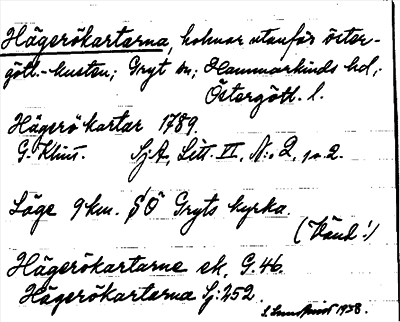 Hägerökartarna, holmar utanför öster-
götl.-kusten; Gryt sn; Hammarkinds hd,
Östergötl. l.
Hägerö kartar 1789.
G. Klint. SjA, Litt. II, N:o 2, 1a 2.
Läge 9 km. SÖ Gryts kyrka.
(Vänd!)
Hägerökartarne ek. G. 46.
Hägerökartarna Sj: 252.
1938.